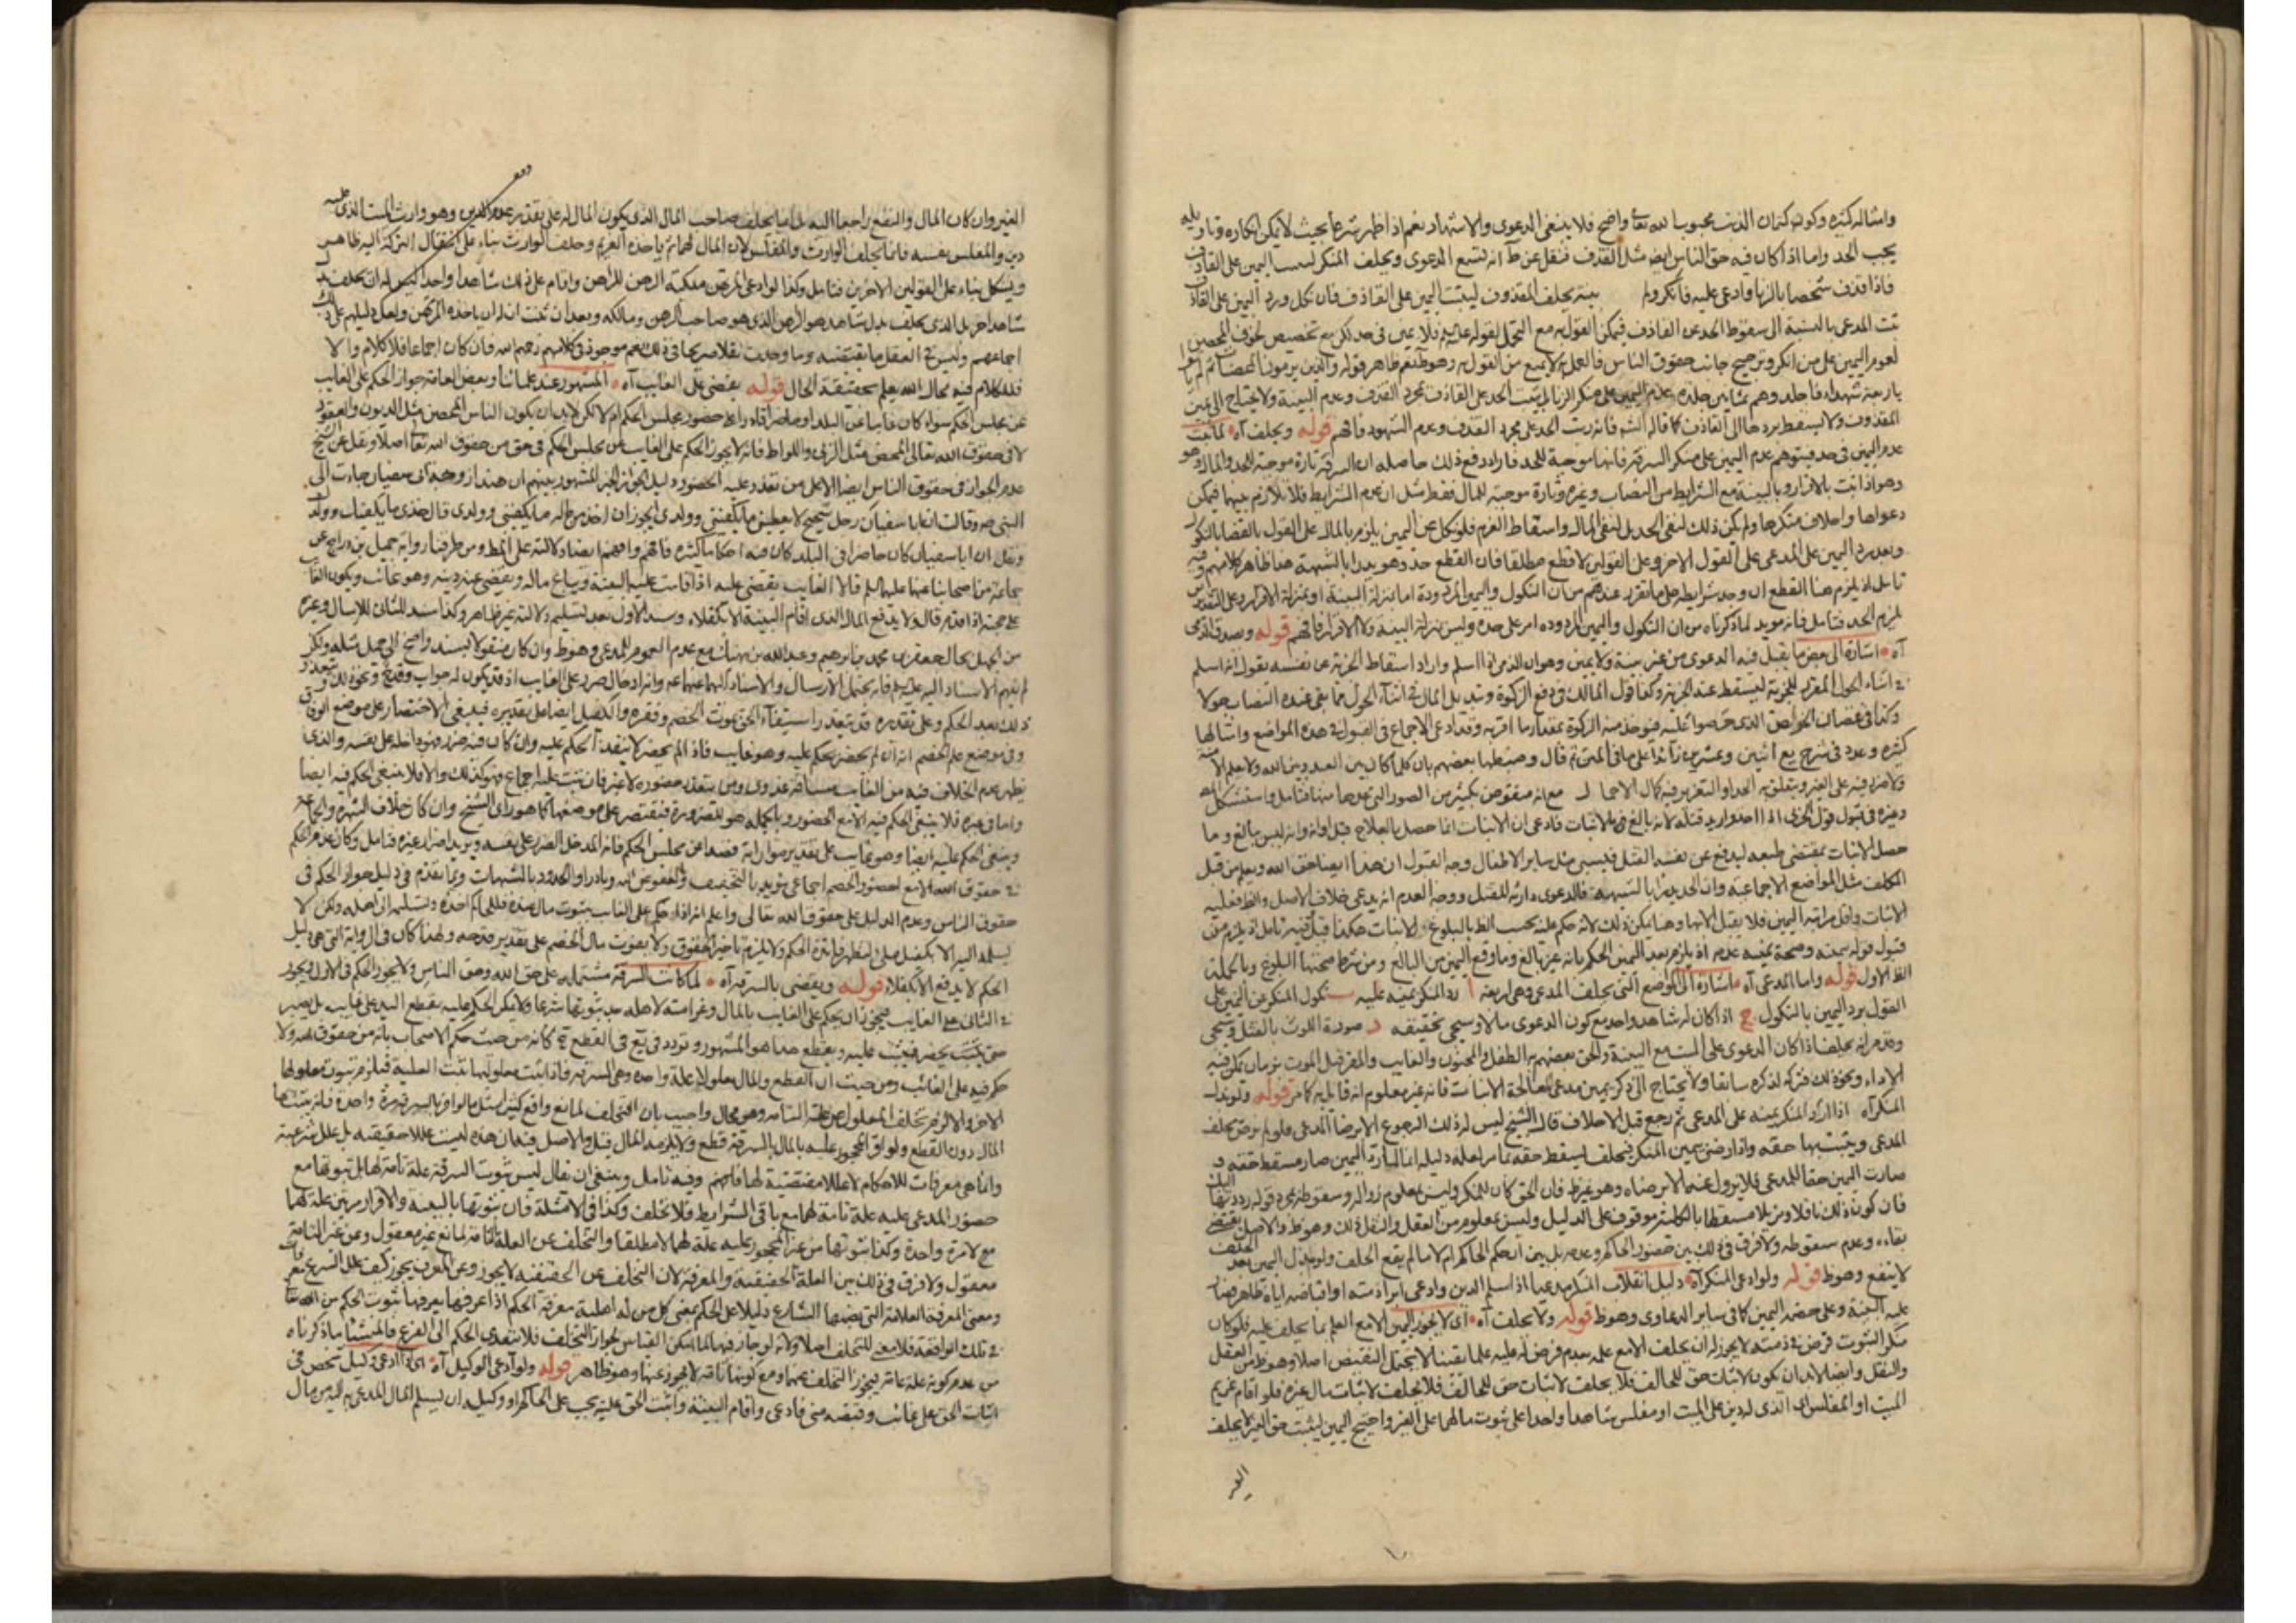 وامثاله كثيرة وكون كتمان الذنب محبوبا لله تعالى واضح فلا ينبغي الدعوى والاشهاد نعم اذا ظهر شرعا بحيث لا يمكن انكاره وتاويله
يجب الحد واما اذا كان فيه حق الناس ايضا مثل القذف فنقل عن ط انه تسمع الدعوى ويحلف المنكر ليست اليمين على القاذف
فاذا قذف شخصا بالزنا وادعى عليه فانكر ولم بينة يحلف المقذوف ليثبت اليمين على القاذف فان نكل ورد اليمين على القاذف
ثبت المدعى بالنسبة الى سقوط الحد عن القاذف فيمكن القول به مع التحمل لقوله عليه فلا يمين في حد لكن مع تخصيص لخوف المحصن
لعموم اليمين على من انكر وترجيح جانب حقوق الناس فالعمل لا يمنع من القول به وهو ظ نعم ظاهر قوله والذين يرمون المحصنات ثم لم ياتوا
باربعة شهداء فاجلدوهم ثمانين جلدة عدم اليمين على منكر الزنا بل يثبت الحد على القاذف بمجرد القذف وعدم البينة ولا يحتاج الى يمين
المقذوف ولا يسقط بردها الى القاذف كما قاله الشيخ فانه رتب الحد على مجرد القذف وعدم الشهود فافهم قوله ويحلف آه لما ثبت
عدم اليمين في حد فيتوهم عدم اليمين على منكر السرقة فانها موجبة للحد فاراد دفع ذلك حاصله ان السرقة تارة موجبة للحد والمال وهو
وهو اذا ثبت بالاقرار وبالبينة مع الشرايط من النصاب وغيره وتارة موجبة للمال فقط مثل ان عدم الشرايط فلا تلازم بينهما فيمكن
دعواها واحلاف منكرها ولم يكن ذلك لنفي الحد بل لنفي المال واسقاط الغرم فلو نكل عن اليمين يلزم بالمال على القول بالقضا بالنكول
وبعد رد اليمين على المدعى على القول الاخر وعلى القولين لا قطع مطلقا فان القطع حد وهو يدرا بالشبهة هذا ظاهر كلامهم وفيه
تامل اذ يلزم هنا القطع ان وجد شرايطه على ما تقرر عندهم من ان النكول واليمين المردودة اما بمنزلة البينة او بمنزلة الاقرار وعلى التقديرين
يلزم الحد فتامل فانه مويد لما ذكرناه من ان النكول واليمين المردوده امر على حده وليس بمنزلة البينة ولا الاقرار فافهم قوله ويصدق الذمى
آه اشارة الى بعض ما يقبل فيه الدعوى من غير بينة ولا يمين وهو ان الذمى اذا اسلم واراد اسقاط الجزية عن نفسه بقول انه اسلم
في اثناء الحول المقرر للجزية ليسقط عنه الجزية وكذا قول المالك في دفع الزكوة وتبديل المال في اثناء الحول مما بقي عنده النصاب حولا
وكذا في نقصان الخراص الذى خرصوا عليه فيوخذ منه الزكوة بمقدار ما اقر به وقد ادعى الاجماع في القبول في هذه المواضع وامثالها
كثيره وعدد في شرح يع اثنين وعشرين زائدا على ما في المتن ثم قال وضبطها بعضهم بان كلما كان بين العبد وبين الله ولا يعلم الا منه
ولا ضرر فيه على الغير ويتعلق به الحد او التعزير فيه كمال الاجمال مع انه منقوض بكثير من الصور التى عدها منها فتامل واستشكل
وغيره في قبول قول الحربى اذا احد واريد قتله لانه بالغ فى الانبات فادعى ان الانبات انما حصل بالعلاج قبل اوانه وانه ليس ببالغ وما
حصل الانبات بمقتضى طبعه ليدفع عن نفسه القتل فليسبى مثل ساير الاطفال وجه القبول ان هذا ايضا حق الله ويعلم من قبل
المكلف مثل المواضع الاجماعية وان الحد يدرا بالشبهة فالدعوى دارئة للقتل ووجه العدم انه يدعى خلاف الاصل والظ فعليه
الاثبات واقل مراتبه اليمين فلا يقبل الا بها وهنا يمكن ذلك لانه حكم عليه بحسب الظ بالبلوغ للانبات هكذا قيل فيه تامل اذ يلزم من
قبول قوله بيمينه وصحة يمينه عدم اذ يلزم بعد اليمين الحكم بانه غير بالغ وما وقع اليمين من البالغ ومن شرط صحتها البلوغ وبالجملة
الظ الاول قوله واما المدعى آه اشارة الى المواضع التى يحلف المدعى وهي اربعة ا رد المنكر يمينه عليه ب نكول المنكر عن اليمين على
القول برد اليمين بالنكول ج اذا كان له شاهد واحد مع كون الدعوى مالا وسيجى تحقيقه د صورة اللوث بالقتل وسيجى
وقد مر انه يحلف اذا كان الدعوى على الميت مع البينة والحق بعضهم به الطفل والمجنون والغايب والمقر قبل الموت بزمان يمكن فيه
الاداء ونحو ذلك فتركه لذكره سابقا ولا يحتاج الى ذكر يمين مدعى المعالجة الانبات فانه غير معلوم انه قايل به كما مر قوله ولو بذل
المنكر آه اذا اراد المنكر يمينه على المدعى ثم رجع قبل الاحلاف قال الشيخ ليس له ذلك الرجوع الا برضا المدعى فلو لم يرض يحلف
المدعى ويثبت بها حقه واذا رضى بيمين المنكر فيحلف ليسقط حقه كما مر لعله دليله انما البارة اليمين صار مسقط حقه و
صارت اليمين حقا للمدعى فلا يزول عنه الا برضاه وهو غير ظ فان الحق كان للمنكر وليس بمعلوم زواله وسقوطه بمجرد قوله رددتها اليك
فان كون ذلك ناقلا ومزيلا مسقطا بالكلية موقوف على الدليل وليس بمعلوم من العقل والنقل ذلك وهو ظ والاصل يقتضى
بقاءه وعدم سقوطه ولا فرق في ذلك بين حضور الحاكم وعدمه بل بين ان حكم الحاكم ام لا ما لم يقع الحلف ولو بذل اليمين بعد الحلف
لا ينفع وهو ظ قوله ولو ادعى المنكر آه دليل انقلاب المنكر مدعيا اذا سلم الدين وادعى ابراء ذمته او اقباضه اياه ظاهر فصار
عليه البينة وعلى خصمه اليمين كما في ساير الدعاوى وهو ظ قوله ولا يحلف آه اى لا يجوز اليمين الا مع العلم بما يحلف عليه فلو كان
منكر الثبوت قرض في ذمته لا يجوز له ان يحلف الا مع علمه بعدم قرض له عليه علما يقينا لا يحتمل النقيض اصلا وهو ظ من العقل
والنقل وايضا لا بد ان تكون لاثبات حق للحالف فلا يحلف لاثبات حق للحالف فلا يحلف لاثبات مال غيره فلو اقام غريم
الميت او المفلس اى الذى له دين على الميت او مفلس شاهدا واحدا على ثبوت مالهما على الغير واحتيج اليمين ليثبت حق الغير لا يحلف
الغير
دفع
الغير وان كان المال والنفع راجعا اليه بل انما يحلف صاحب المال الذى يكون المال له على تقدير عدم الدين وهو وارث الميت الذى عليه
دين والمفلس بنفسه فانما يحلف الوارث والمفلس لان المال لهما ثم ياخذه الغريم وحلف الوارث بناء على انتقال التركة اليه ظاهر
ويشكل بناء على القولين الاخرين فتامل وكذا لو ادعى المرتهن ملكية الرهن للراهن واقام على ذلك شاهدا واحدا ليس له ان يحلف بدل
شاهد اخر بل الذى يحلف بدل شاهد هو الراهن الذى هو صاحب الرهن ومالكه وبعد ان ثبت انه له ان ياخذه المرتهن ولعل دليلهم على ذلك
اجماعهم وليس في العقل ما يقتضيه وما وجدت نقلا صريحا في ذلك نعم موجود في كلامهم رحمهم الله فان كان اجماعا فلا كلام والا
فللكلام فيه مجال الله يعلم بحقيقة الحال قوله يقضى على الغايب آه المشهور عند علمائنا وبعض العامة جواز الحكم على الغايب
عن مجلس الحكم سواء كان غايبا عن البلد او حاضرا قادرا على حضور مجلس الحكم ام لا لكن لا بد ان يكون الناس المحصن مثل الديون والعقود
لا في حقوق الله تعالى المحض مثل الزنى واللواط فانه لا يجوز الحكم على الغايب عن مجلس الحكم في حق من حقوق الله تعالى اصلا ونقل عن الشيخ
عدم الجواز في حقوق الناس ايضا الا على من تعذر عليه الحضور دليل الجواز الخبر المشهور بينهم ان هندا زوجة ابى سفيان جاءت الى
النبى ص وقالت ان ابا سفيان رجل شحيح لا يعطينى ما يكفينى وولدى ايجوز ان اخذ من ماله ما يكفينى وولدى قال خذى ما يكفيك وولدك
ونقل ان ابا سفيان كان حاضرا في البلد كان فيه احكاما كثيره فافهم وافهم ايضا دلالته على المط ومن طرفنا رواية جميل بن دراج عن
جماعة من اصحابنا عنهما عليهما السلم قالا الغايب يقضى عليه اذا قامت عليه البينة ويباع ماله ويقضى عنه دينه وهو غائب ويكون الغايب
على حجته اذا قدم قال ولا يدفع المال الذى اقام البينة الا بكفلاء وسند الاول بعد تسليم دلالته غير ظاهر وكذا سند الثانى للارسال وغيره
من الجهل بحال جعفر بن محمد بن ابرهيم وعبد الله بن نهيك مع عدم العموم المدعى وهو ظ وان كان منقولا بسند واضح الى جميل مثله ولكن
لم يفهم الاسناد اليه عليه السلم فانه يحتمل الارسال والاسناد اليهما عنهما عه وانه ادخال ضرر على الغايب اذ قد يكون له جواب وقدح ونحو ذلك وتعذر
ذلك بعد الحكم وعلى تقديره قد يتعذر استيفاء الحق بموت الخصم وفقره والكفيل ايضا على تقديره فينبغى الاختصار على موضع الوفاق
وفي موضع علم الخصم انه ان لم يحضر يحكم عليه وهو غايب فاذا لم يحضر لا ينفذ الحكم عليه وان كان فيه ضرر فهو ادخله على نفسه والذى
يظهر عدم الخلاف فيه من الغايب مسافة عدوى ومن يتعذر حضوره لا غير فان ثبت عليه اجماع فهو كذلك والا فلا ينبغى الحكم فيه ايضا
واما في غيره فلا ينبغى الحكم فيه الا مع الحضور وبالجملة هو للضرورة فيقتصر على موضعها كما هو راى الشيخ وان كان خلاف الشهرة والجماعة
وينبغى الحكم عليه ايضا وهو غايب على تقدير مواراته قصدا عن مجلس الحكم فانه المدخل الضرر على نفسه ويريد اضرار غيره فتامل وكان عدم الحكم
في حقوق الله الا مع حضور الخصم اجماعى مويد بالتخفيف والعفو عن الله وبادراؤا الحدود بالشبهات وبما تقدم في دليل جواز الحكم في
حقوق الناس وعدم الدليل على حقوق الله تعالى واعلم انه اذا حكم على الغايب بثبوت مال عنده فللحاكم اخذه وتسليمه الى اهله ولكن لا
يسلمه اليه الا بكفيل ملى لتظهر فائدة الحكم ولا يلزم تاخير الحقوق ولا يفوت مال الخصم على تقدير قدحه ولهذا كان في الرواية التى هى دليل
الحكم لا يدفع الا بكفلاء قوله ويقضى بالسرقة آه لما كانت السرقة مشتملة على حق الله وحق الناس ولا يجوز الحكم في الاول ويجوز
في الثانى على الغايب فيجوز ان يحكم على الغايب بالمال وغرامته لاهله بعد ثبوتها شرعا ولا يمكن الحكم عليه بقطع اليد على غايب بل يصير
حتى يحضر فيثبت عليه ويقطع هذا هو المشهور وتردد في يع في القطع ح كانه من حيث حكم الاصحاب بانه من حقوق الله ولا
حكم فيه على الغائب ومن حيث ان القطع والمال معلولا علة واحدة وهى السرقة فاذا ثبت معلولها ثبت العلية فيلزم ثبوت معلولها
الاخر والا لزم تخلف المعلول عن علته التامة وهو محال واجيب بان التخلف لمانع واقع كثيرا مثل ما لو اقر بالسرقة مرة واحدة فانه يثبت بها
المال دون القطع ولو اقر المحجور عليه بالمال بالسرقة قطع ولا يلزمه المال قيل والاصل فيه ان هذه ليست عللا حقيقية بل علل شرعية
وانما هى معرفات للاحكام لا عللا مقتضية لها فافهم وفيه تامل وينبغى ان يقال ليس ثبوت السرقة علة تامة لها بل ثبوتها مع
حضور المدعى عليه علة تامة لهما مع باقى الشرايط فلا تخلف وكذا في الامثلة فان ثبوتها بالبينة والاقرار مرتين علة لهما
مع لا مرة واحدة وكذا ثبوتها من غير المحجور عليه علة لهما لا مطلقا والتخلف عن العلة التامة لمانع غير معقول وعن غير التامة
معقول ولا فرق في ذلك بين العلة الحقيقية والمعرفة لان التخلف عن الحقيقية لا يجوز وعن المعرف يجوز كيف علل الشرع معرفات
ومعنى المعرفة العلامة التى نصبها الشارع دليلا على الحكم بمعنى كل من له اهلية معرفة الحكم اذا عرفها يعرف بها ثبوت الحكم من الله تعالى
في تلك الواقعة فلا معنى للتخلف اصلا ولانه لو جاز فيها لما امكن القياس لجواز التخلف فلا يتعدى الحكم الى الفرع فالمنشا ما ذكرناه
من عدم كونه علة تامة يجوز التخلف عنها ومع كونها تامة لا يجوز عنها وهو ظاهر قوله ولو ادعى الوكيل آه اى لو ادعى وكيل شخص في
اثبات الحق على غائب وقبضه منى فادعى واقام البينة واثبت الحق عليه يجب على الحاكم او وكيله ان يسلم المال المدعى به اليه من مال